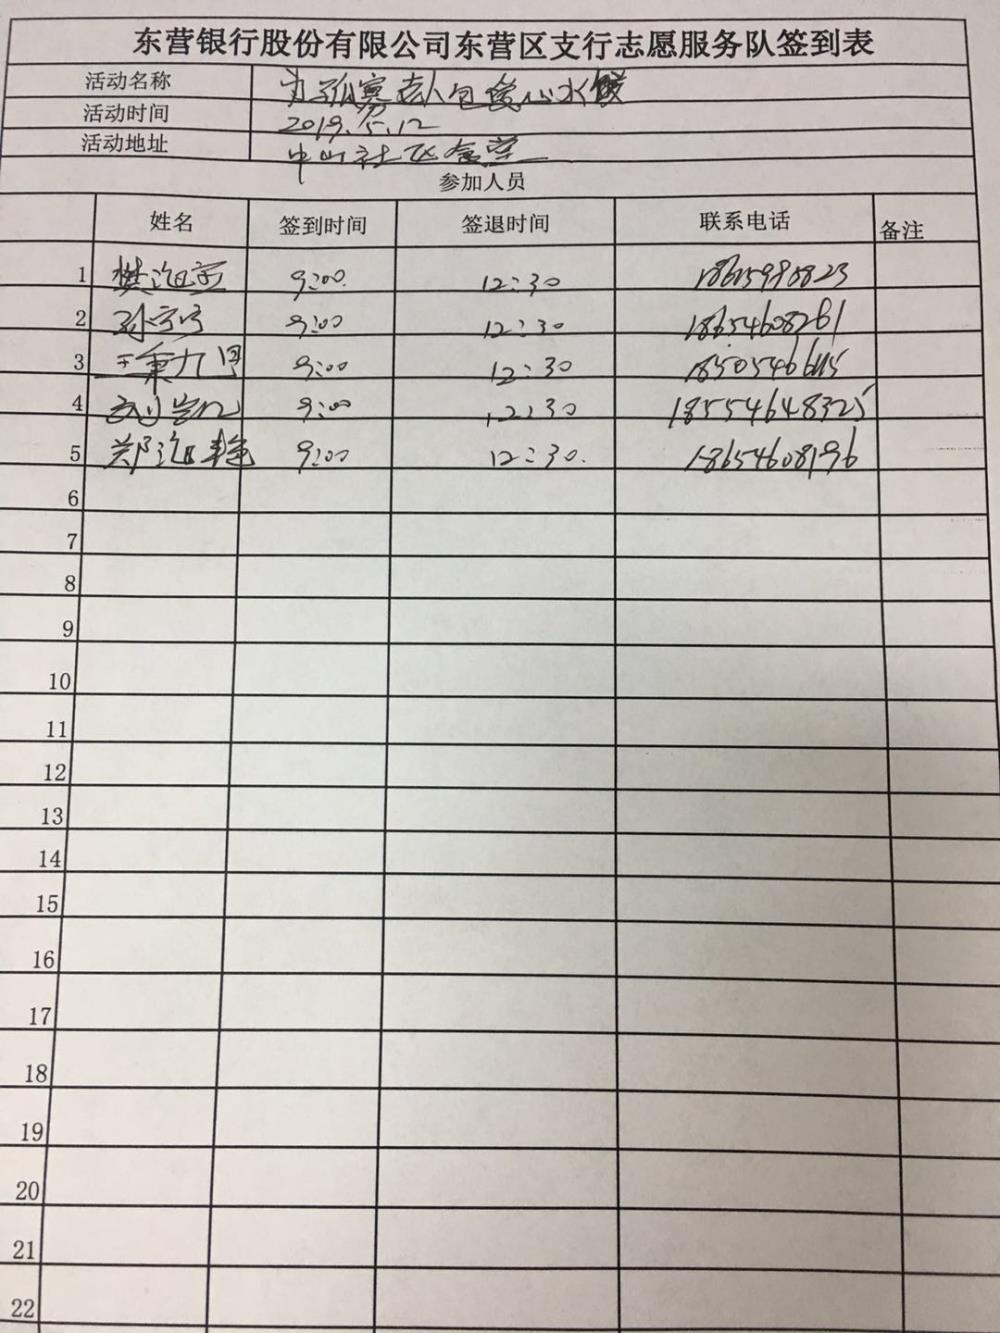 东营银行股份有限公司东营区支行志愿服务队签到表
活动名称 为孤寡老人包爱心水饺
活动时间 2019.5.12
活动地址 中山社区食堂
参加人员
姓名 签到时间 签退时间 联系电话 备注
1 9:00 12:30
2 孙宁宁 9:00 12:30 18654608261
3 9:00 12:30
4 9:00 12:30 18554648325
5 郑海艳 9:00 12:30. 18654608196
6
7
8
9
10
11
12
13
14
15
16
17
18
19
20
21
22